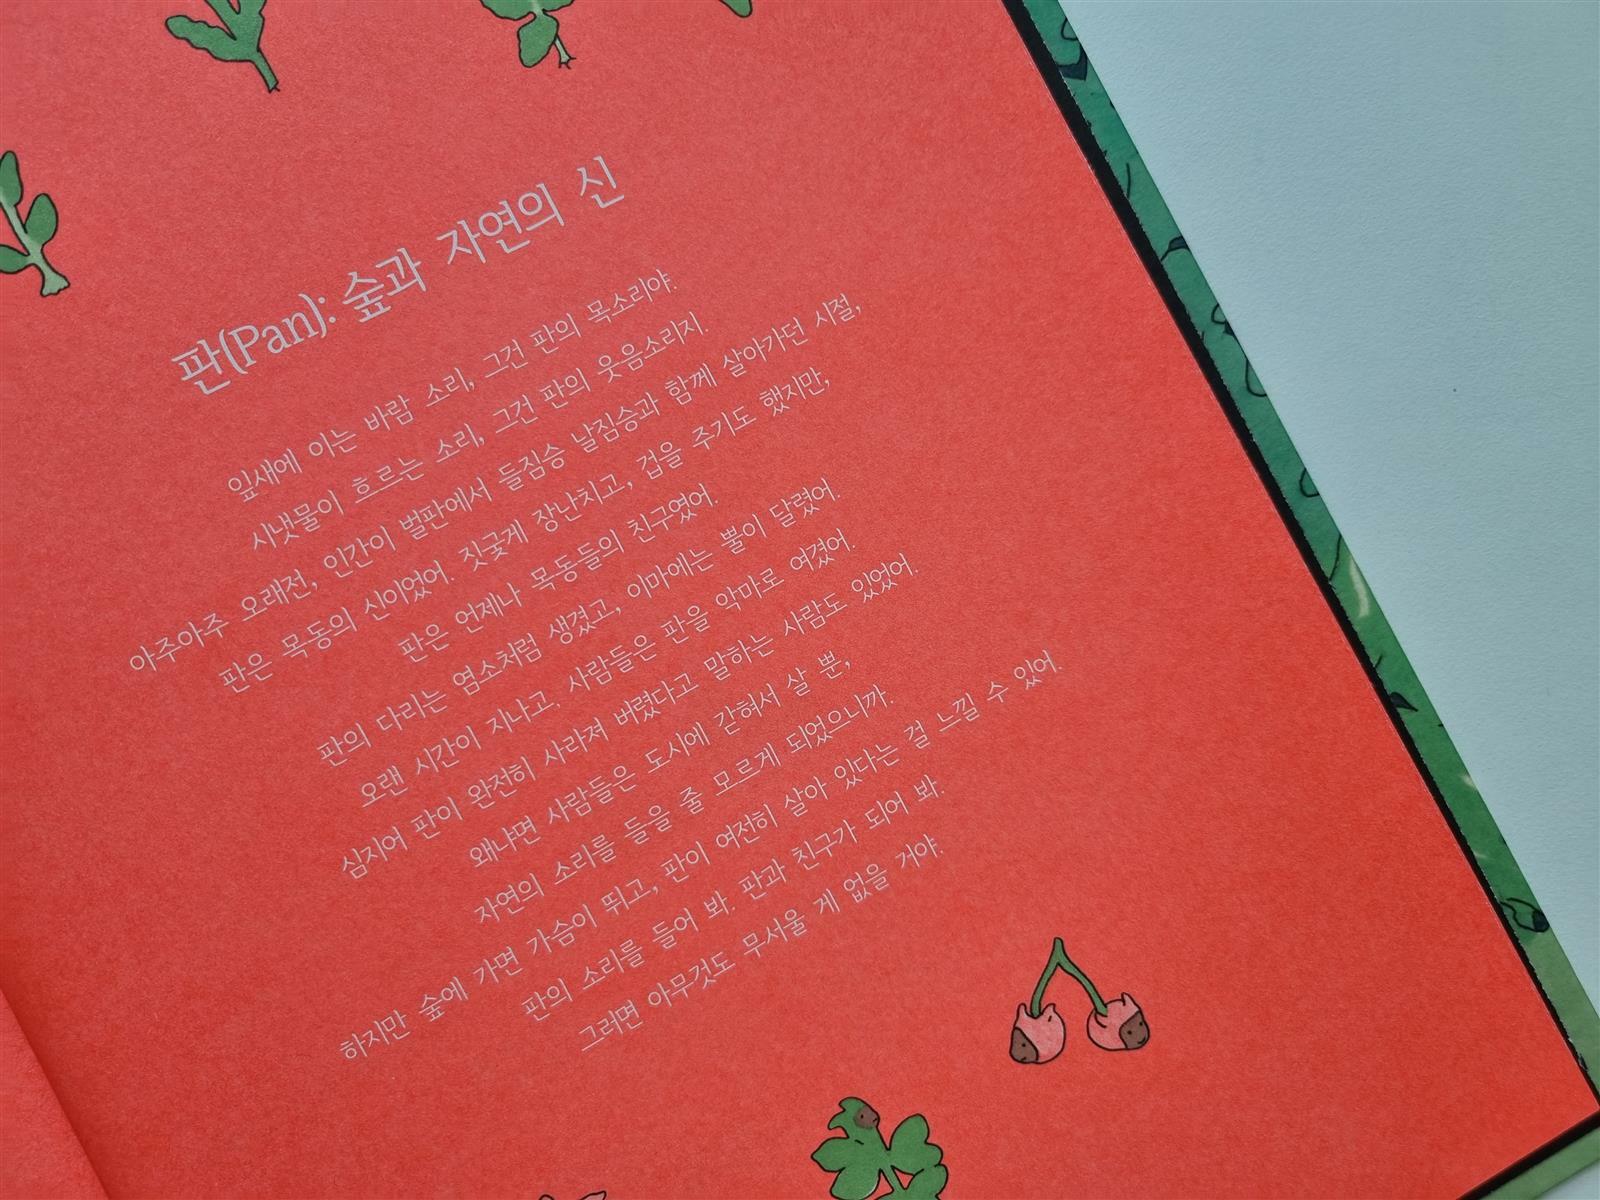 판(Pan): 숲과 자연의 신
잎새에 이는 바람 소리, 그건 판의 목소리야.
시냇물이 흐르는 소리, 그건 판의 웃음소리지.
아주아주 오래전, 인간이 벌판에서 들짐승 날짐승과 함께 살아가던 시절,
판은 목동의 신이었어. 짓궂게 장난치고, 겁을 주기도 했지만,
판은 언제나 목동들의 친구였어.
판의 다리는 염소처럼 생겼고, 이마에는 뿔이 달렸어.
오랜 시간이 지나고, 사람들은 판을 악마로 여겼어.
심지어 판이 완전히 사라져 버렸다고 말하는 사람도 있었어.
왜냐면 사람들은 도시에 갇혀서 살 뿐,
자연의 소리를 들을 줄 모르게 되었으니까.
하지만 숲에 가면 가슴이 뛰고, 판이 여전히 살아 있다는 걸 느낄 수 있어.
판의 소리를 들어 봐. 판과 친구가 되어 봐.
그러면 아무것도 무서울 게 없을 거야.